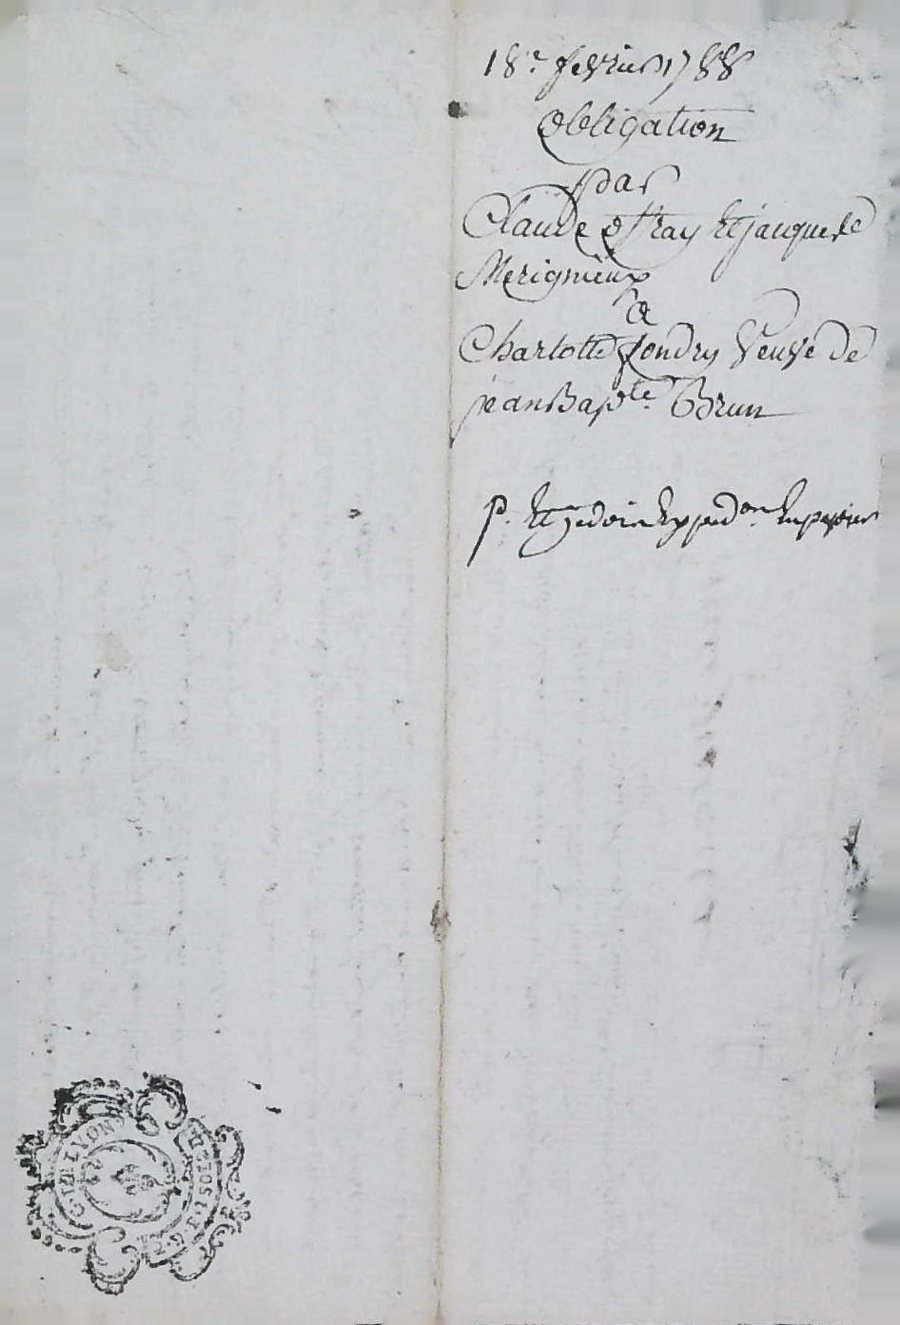 18e fevrier 1788
Obligation
par
Claude offray Et jacques
Merignieux
a
Charlotte fondry Veuve de
jean Bapte Brun
p. Et
G. DE LYON
2 SOLS